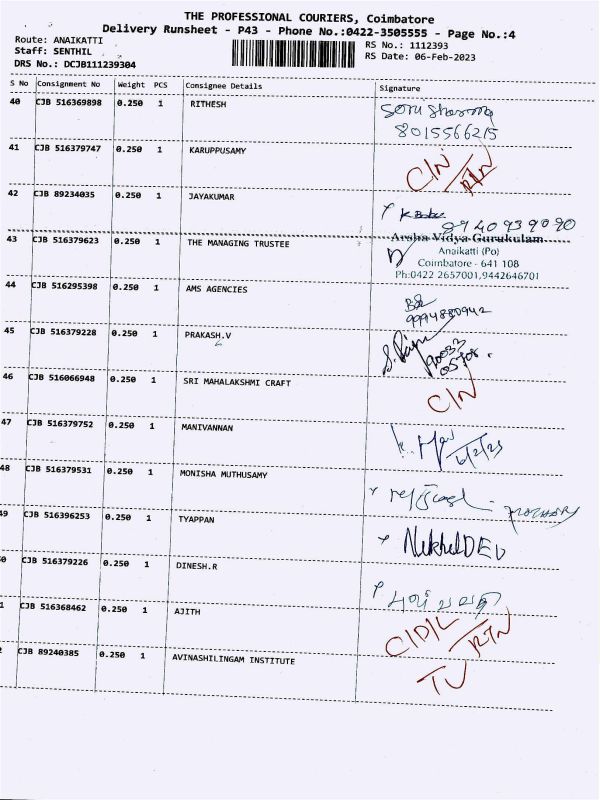 THE PROFESSIONAL COURIERS, Coimbatore
Delivery Runsheet - P43 - Phone No.:0422-3505555 - Page No.:4
Route: ANAIKATTI
Staff: SENTHIL
DRS No.: DCJB111239304
RS No.: 1112393
RS Date: 06-Feb-2023
S No Consignment No Weight PCS Consignee Details Signature
40 CJB 516369898 0.250 1 RITHESH
8015566215
41 CJB 516379747 0.250 1 KARUPPUSAMY C/N/RTN
42 CJB 89234035 0.250 1 JAYAKUMAR
8940939090
43 CJB 516379623 0.250 1 THE MANAGING TRUSTEE Arsha Vidya Gurukulam
Anaikatti (Po)
Coimbatore - 641 108
Ph:0422 2657001,9442646701
44 CJB 516295398 0.250 1 AMS AGENCIES
9994880942
45 CJB 516379228 0.250 1 PRAKASH.V
90033
05708
46 CJB 516066948 0.250 1 SRI MAHALAKSHMI CRAFT C/N
47 CJB 516379752 0.250 1 MANIVANNAN
6/2/23
48 CJB 516379531 0.250 1 MONISHA MUTHUSAMY
49 CJB 516396253 0.250 1 TYAPPAN NikhilDEV
0 CJB 516379226 0.250 1 DINESH.R
1 CJB 516368462 0.250 1 AJITH C/D/L/RTN
CJB 89240385 0.250 1 AVINASHILINGAM INSTITUTE TV